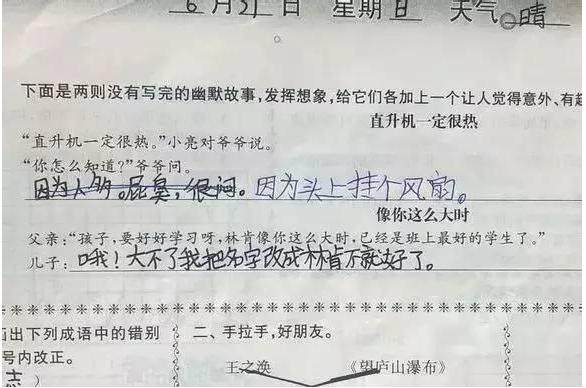 6月21日 星期日 天气:晴
下面是两则没有写完的幽默故事,发挥想象,给它们各加上一个让人觉得意外、有趣
直升机一定很热
“直升机一定很热。”小亮对爷爷说。
“你怎么知道?”爷爷问。
因为人多。屁臭,很闷。因为头上挂个风扇。
像你这么大时
父亲:“孩子,要好好学习呀,林肯像你这么大时,已经是班上最好的学生了。”
儿子:哦!大不了我把名字改成林肯不就好了。
出下列成语中的错别 二、手拉手,好朋友。
号内改正。 王之涣 《望庐山瀑布》